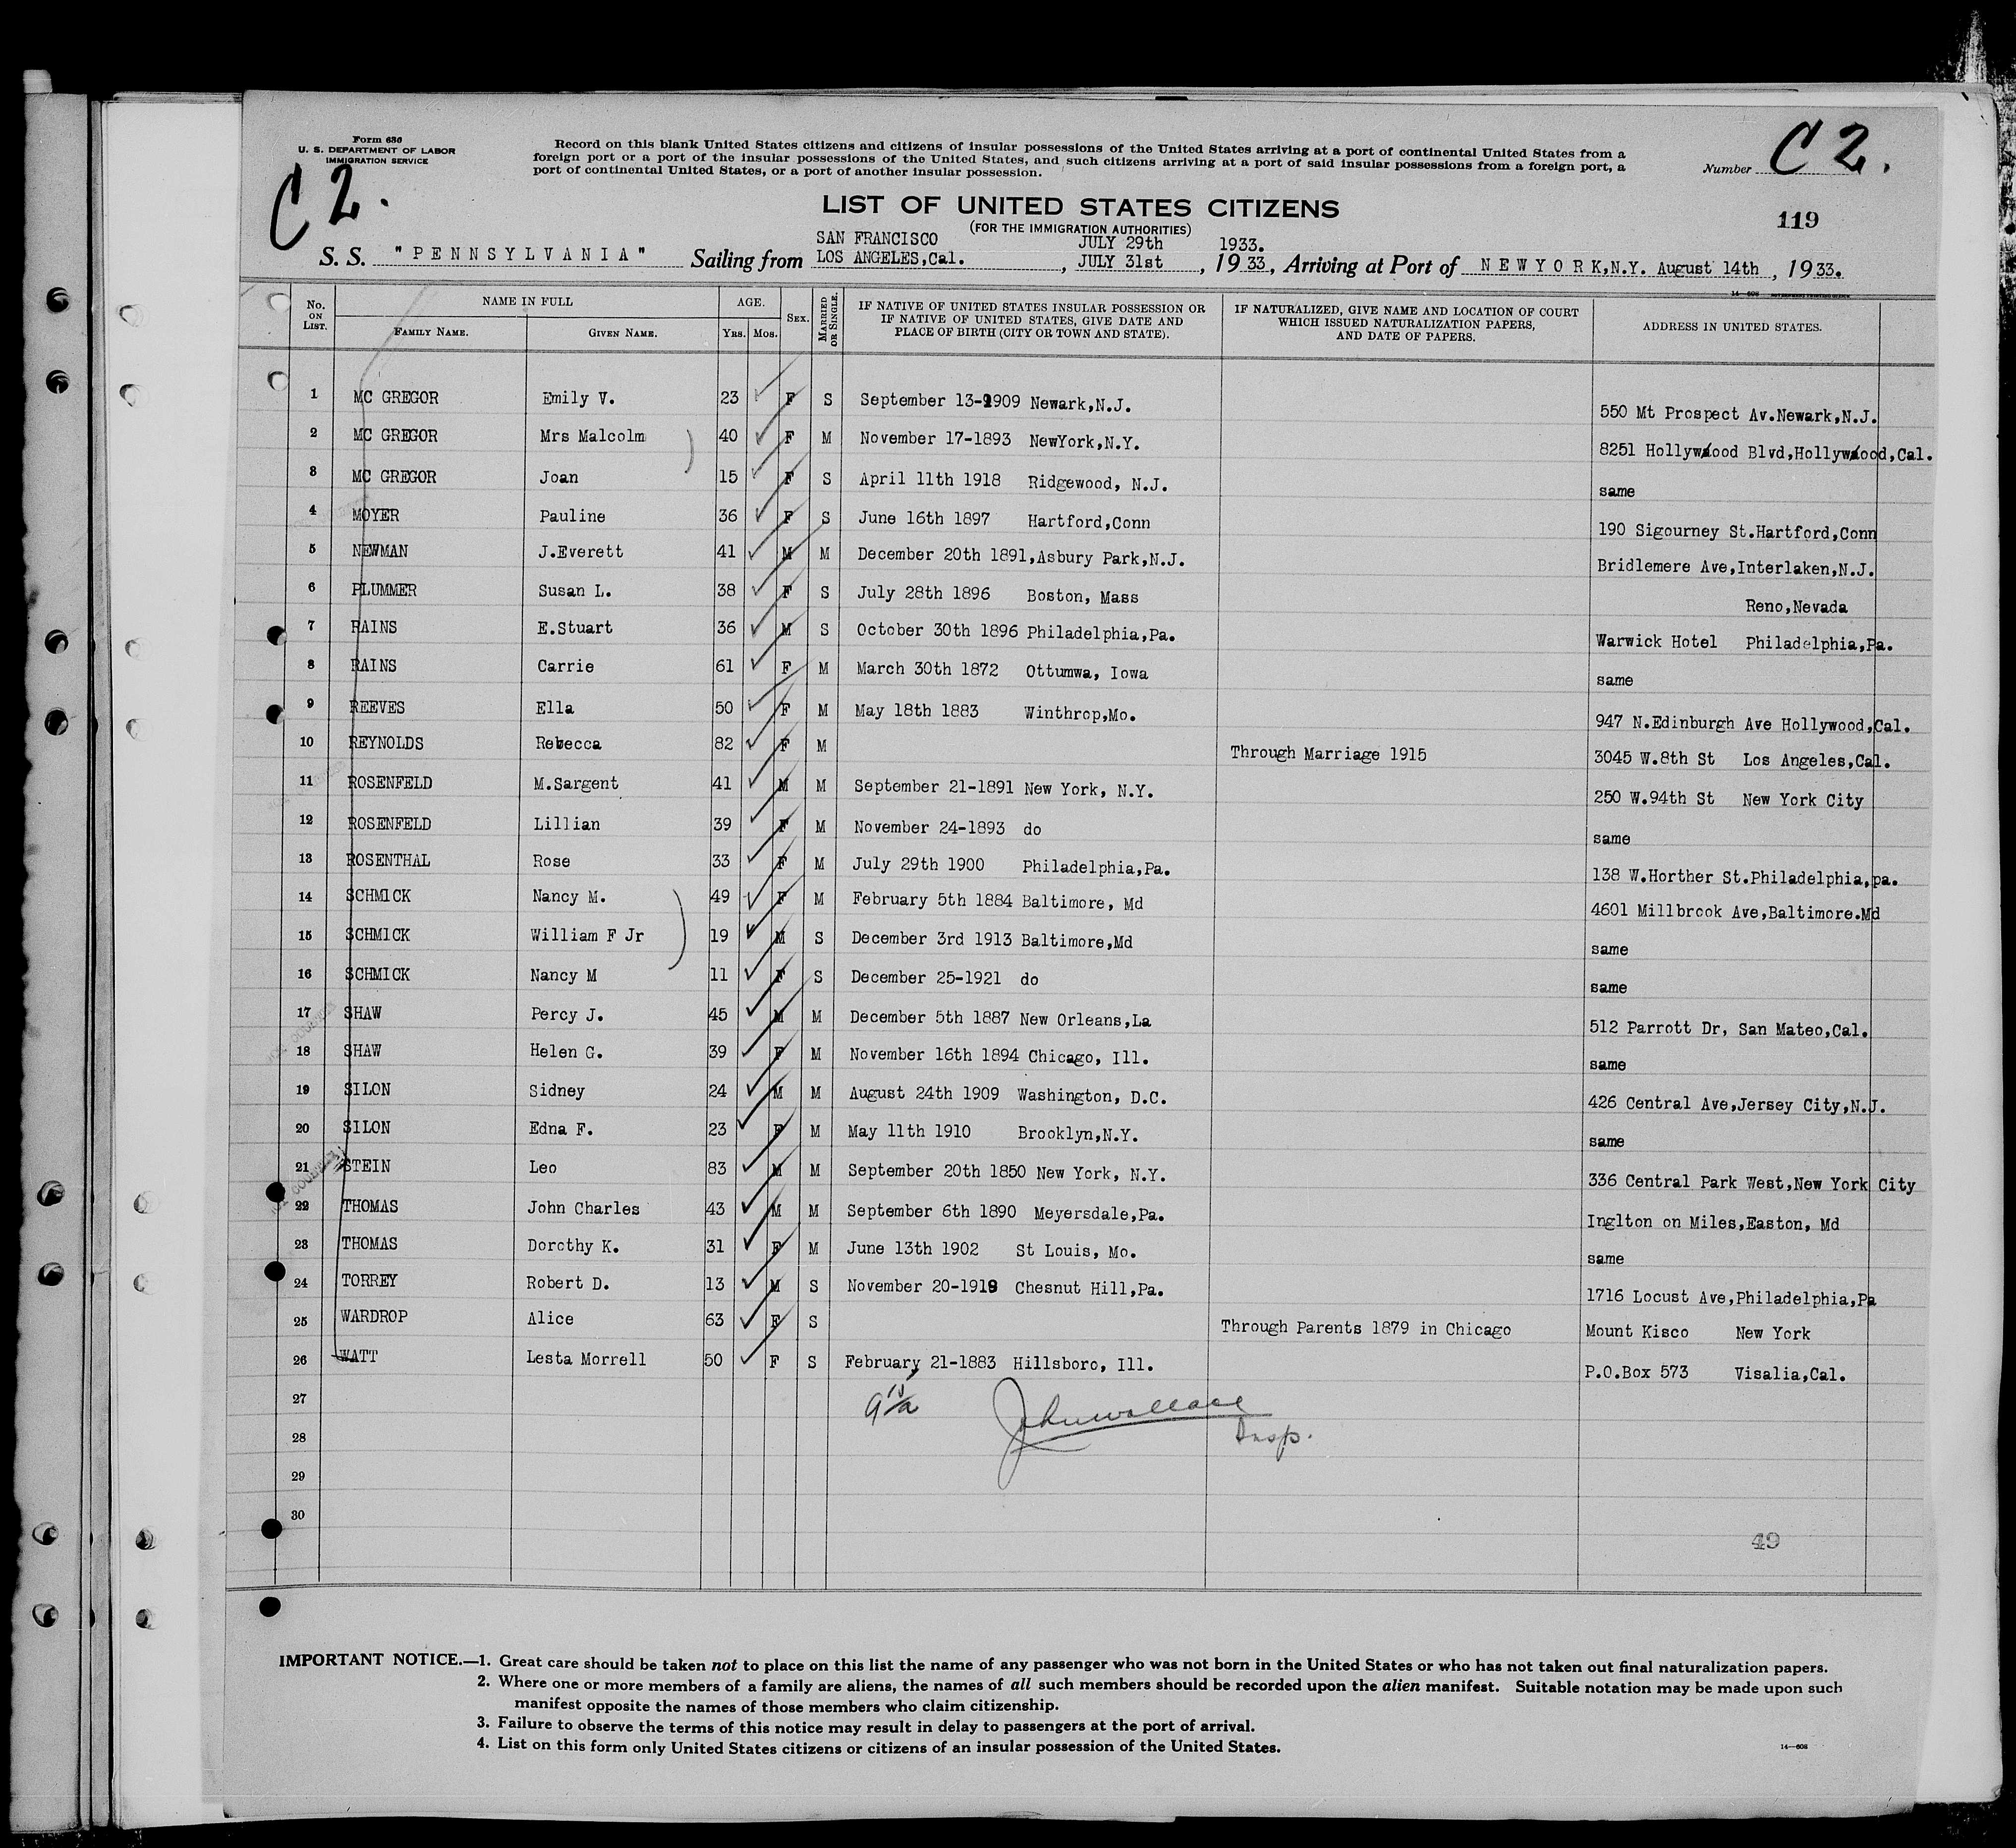 Form 630
U. S. DEPARTMENT OF LABOR
IMMIGRATION SERVICE
C 2.
Record on this blank United States citizens and citizens of insular possessions of the United States arriving at a port of continental United States from a
foreign port or a port of the insular possessions of the United States, and such citizens arriving at a port of said insular possessions from a foreign port, a
port of continental United States, or a port of another insular possession.
Number C 2.
119
LIST OF UNITED STATES CITIZENS
(FOR THE IMMIGRATION AUTHORITIES)
SAN FRANCISCO JULY 29th 1933.
S. S. "PENNSYLVANIA" Sailing from LOS ANGELES,Cal., JULY 31st, 19 33, Arriving at Port of NEW YORK,N.Y. August 14th, 19 33.
No. ON LIST. NAME IN FULL FAMILY NAME. GIVEN NAME. AGE. Yrs. Mos. Sex. MARRIED OR SINGLE. IF NATIVE OF UNITED STATES INSULAR POSSESSION OR IF NATIVE OF UNITED STATES, GIVE DATE AND PLACE OF BIRTH (CITY OR TOWN AND STATE). IF NATURALIZED, GIVE NAME AND LOCATION OF COURT WHICH ISSUED NATURALIZATION PAPERS, AND DATE OF PAPERS. ADDRESS IN UNITED STATES.
1 MC GREGOR Emily V. 23 F S September 13-1909 Newark,N.J. 550 Mt Prospect Av.Newark,N.J.
2 MC GREGOR Mrs Malcolm 40 F M November 17-1893 NewYork,N.Y. 8251 Hollywood Blvd,Hollywood,Cal.
3 MC GREGOR Joan 15 F S April 11th 1918 Ridgewood, N.J. same
4 MOYER Pauline 36 F S June 16th 1897 Hartford,Conn 190 Sigourney St.Hartford,Conn
5 NEWMAN J.Everett 41 M M December 20th 1891,Asbury Park,N.J. Bridlemere Ave,Interlaken,N.J.
6 PLUMMER Susan L. 38 F S July 28th 1896 Boston, Mass Reno,Nevada
7 RAINS E.Stuart 36 M S October 30th 1896 Philadelphia,Pa. Warwick Hotel Philadelphia,Pa.
8 RAINS Carrie 61 F M March 30th 1872 Ottumwa, Iowa same
9 REEVES Ella 50 F M May 18th 1883 Winthrop,Mo. 947 N.Edinburgh Ave Hollywood,Cal.
10 REYNOLDS Rebecca 82 F M Through Marriage 1915 3045 W.8th St Los Angeles,Cal.
11 ROSENFELD M.Sargent 41 M M September 21-1891 New York, N.Y. 250 W.94th St New York City
12 ROSENFELD Lillian 39 F M November 24-1893 do same
13 ROSENTHAL Rose 33 F M July 29th 1900 Philadelphia,Pa. 138 W.Horther St.Philadelphia,pa.
14 SCHMICK Nancy M. 49 F M February 5th 1884 Baltimore, Md 4601 Millbrook Ave,Baltimore.Md
15 SCHMICK William F Jr 19 M S December 3rd 1913 Baltimore,Md same
16 SCHMICK Nancy M 11 F S December 25-1921 do same
17 SHAW Percy J. 45 M M December 5th 1887 New Orleans,La 512 Parrott Dr, San Mateo,Cal.
18 SHAW Helen G. 39 F M November 16th 1894 Chicago, Ill. same
19 SILON Sidney 24 M M August 24th 1909 Washington, D.C. 426 Central Ave,Jersey City,N.J.
20 SILON Edna F. 23 F M May 11th 1910 Brooklyn,N.Y. same
21 STEIN Leo 83 M M September 20th 1850 New York, N.Y. 336 Central Park West,New York City
22 THOMAS John Charles 43 M M September 6th 1890 Meyersdale,Pa. Inglton on Miles,Easton, Md
23 THOMAS Dorothy K. 31 F M June 13th 1902 St Louis, Mo. same
24 TORREY Robert D. 13 M S November 20-1919 Chesnut Hill,Pa. 1716 Locust Ave,Philadelphia,Pa
25 WARDROP Alice 63 F S Through Parents 1879 in Chicago Mount Kisco New York
26 WATT Lesta Morrell 50 F S February 21-1883 Hillsboro, Ill. P.O.Box 573 Visalia,Cal.
27 John Wallace
28 Insp.
29
30
49
IMPORTANT NOTICE.—1. Great care should be taken not to place on this list the name of any passenger who was not born in the United States or who has not taken out final naturalization papers.
2. Where one or more members of a family are aliens, the names of all such members should be recorded upon the alien manifest. Suitable notation may be made upon such
manifest opposite the names of those members who claim citizenship.
3. Failure to observe the terms of this notice may result in delay to passengers at the port of arrival.
4. List on this form only United States citizens or citizens of an insular possession of the United States.
14—608